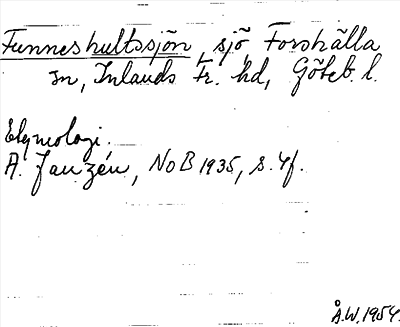 Funneshultssjön, sjö Forshälla
sn, Inlands Fr. hd, Göteb. l.
Etymologi.
A. Janzén, NoB 1935, s. 4f.
Å.W. 1954.